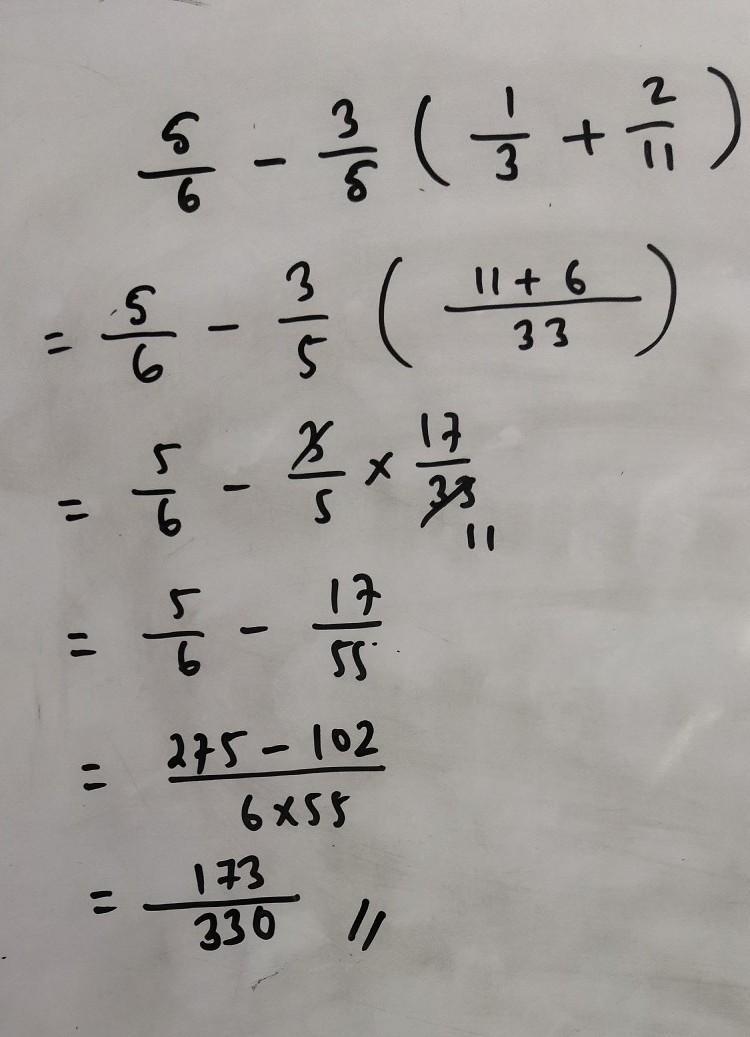 5/6 - 3/5 ( 1/3 + 2/11 )
= 5/6 - 3/5 ( (11 + 6)/33 )
= 5/6 - 3/5 × 17/33 11
= 5/6 - 17/55
= (275 - 102)/(6×55)
= 173/330 //